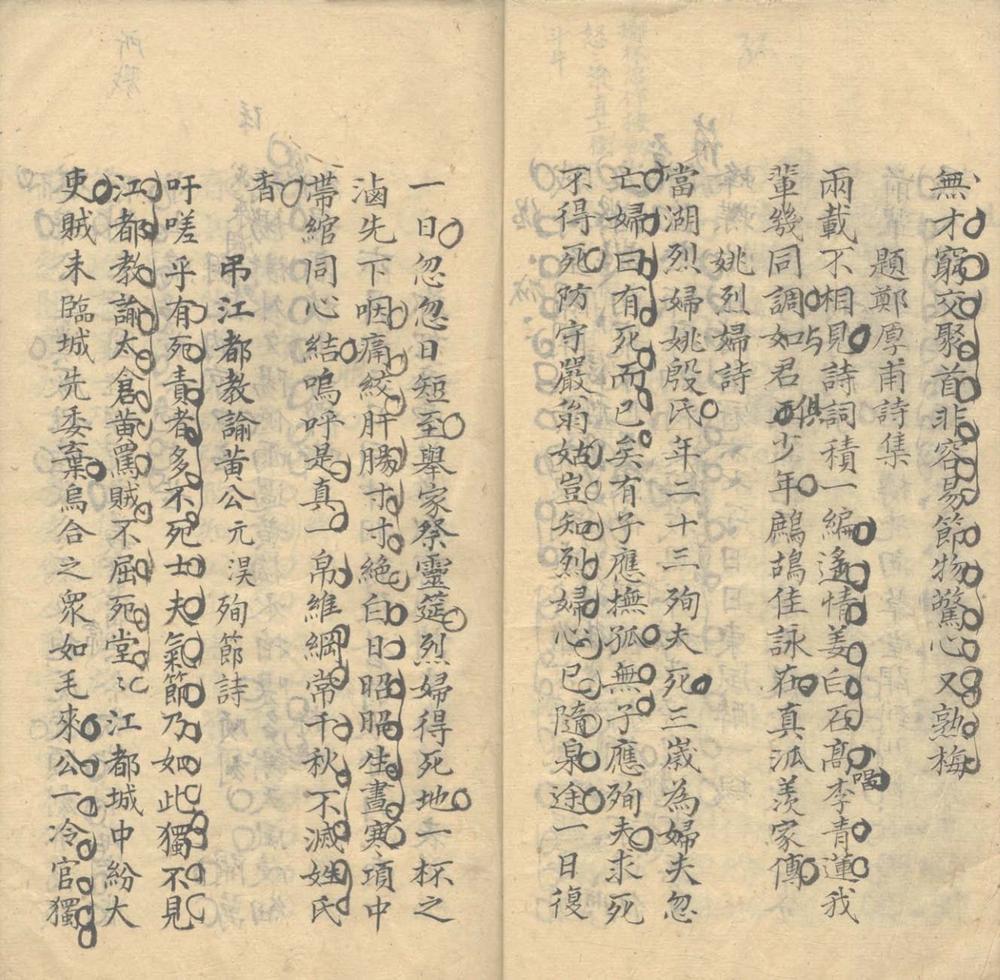 無才窮交聚首非容易節物驚心又熟梅
題鄭厚甫詩集
兩載不相見詩詞積一編遙情姜白石高唱李青蓮我
輩幾同調如君與俱少年鷓鴣佳詠在真派羨家傳
姚烈婦詩
當湖烈婦姚殷氏年二十三殉夫死三歲為婦夫忽
亡婦曰有死而已矣有子應撫孤無子應殉夫求死
不得死防守嚴翁姑豈知烈婦心已隨泉途一日復
一日忽忽日短至舉家祭靈筵烈婦得死地一杯之
滷先下咽痛絞肝腸寸寸絕白日昭昭生晝寒項中
帶綰同心結嗚呼是真一帛維綱常千秋不滅姓氏
香
弔江都教諭黃公元淏殉節詩
吁嗟乎有死責者多不死士夫氣節乃如此獨不見
江都教諭太倉黃罵賊不屈死堂堂江都城中紛大
吏賊未臨城先委棄烏合之眾如毛來公一冷官獨